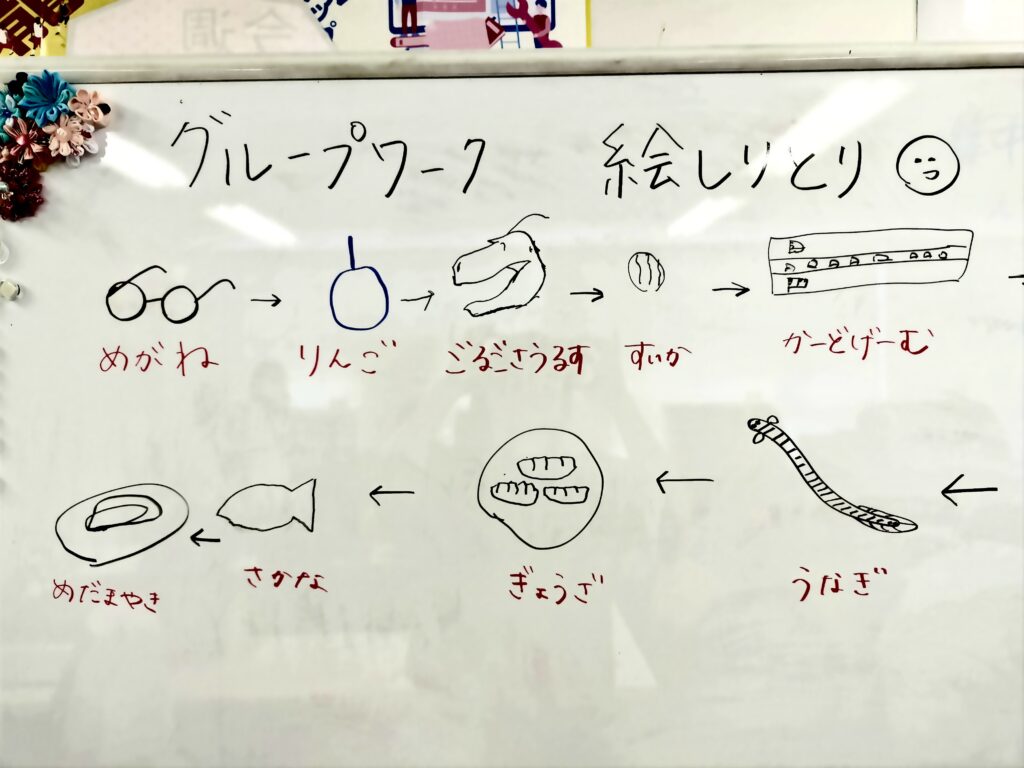 今週
グループワーク 絵しりとり
めがね りんご ごるごさうるす すいか かーどげーむ
めだまやき さかな ぎょうざ うなぎ